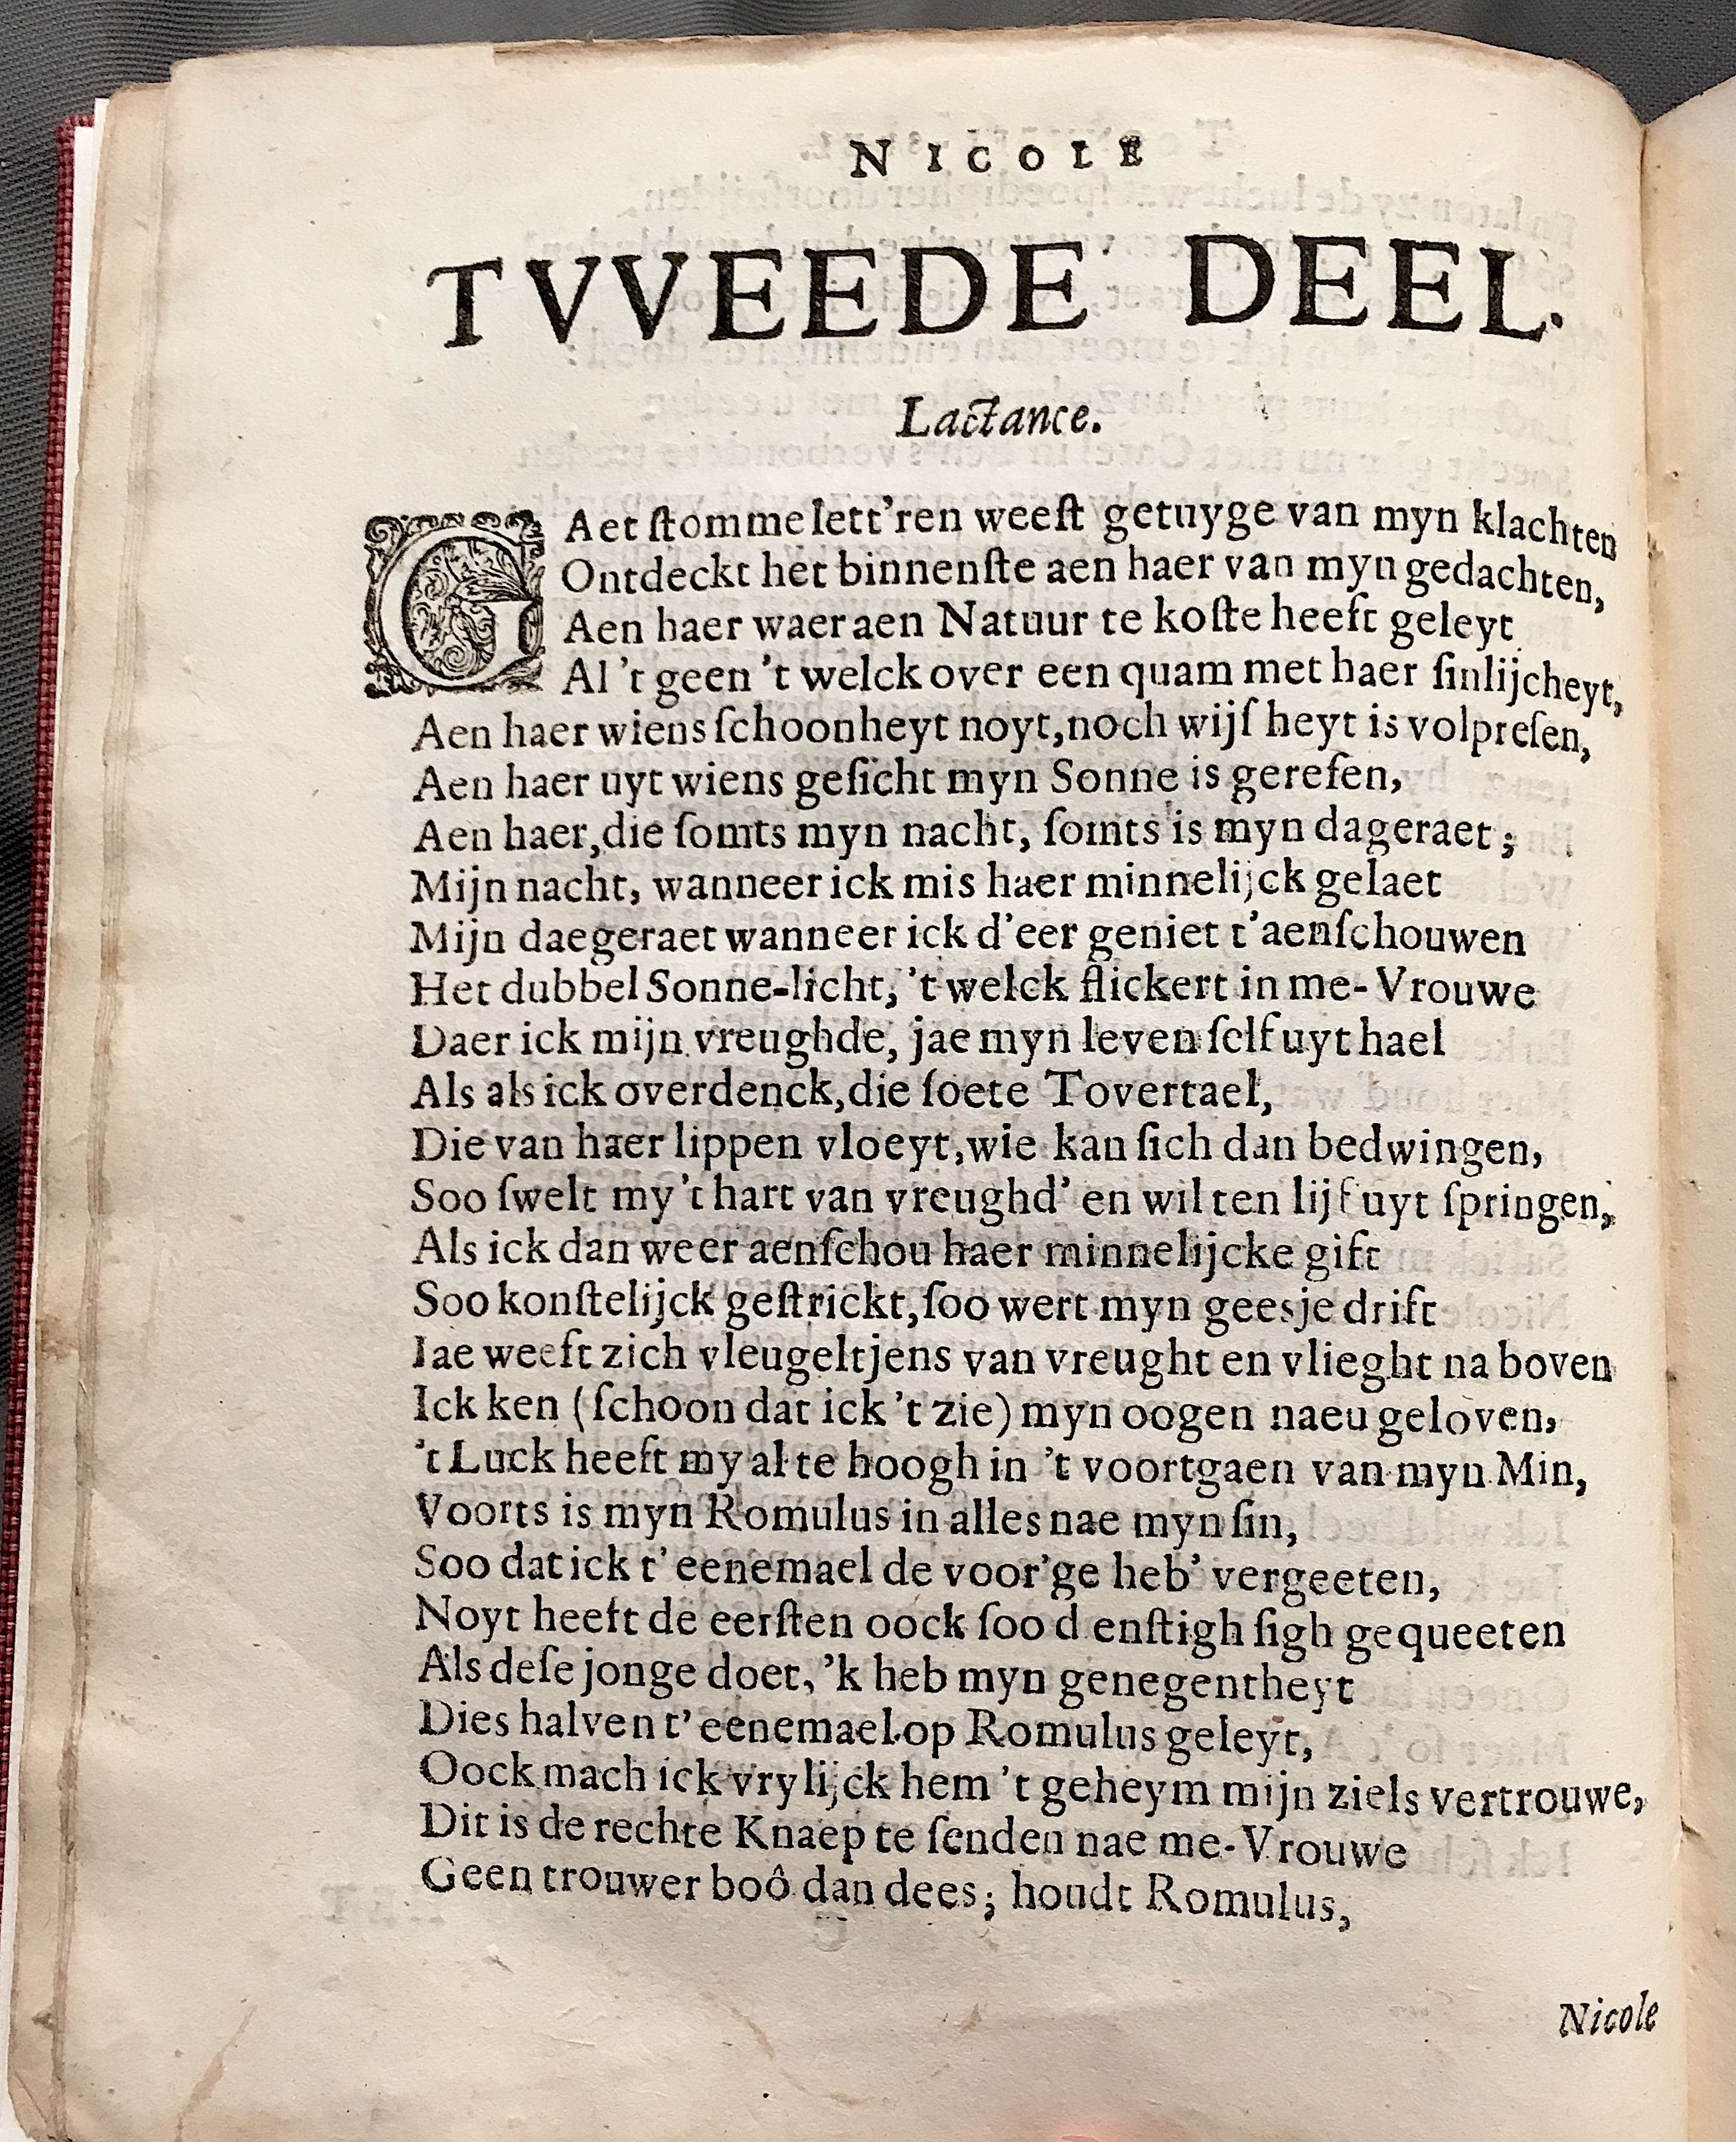 NICOLE
TVVEEDE DEEL.
Lactance.
GAet ſtomme lett'ren weeſt getuyge van myn klachten
Ontdeckt het binnenſte aen haer van myn gedachten,
Aen haer waer aen Natuur te koſte heeft geleyt
Al 't geen 't welck over een quam met haer ſinlijcheyt,
Aen haer wiens ſchoonheyt noyt, noch wijſ heyt is volpreſen,
Aen haer uyt wiens geſicht myn Sonne is gereſen,
Aen haer, die ſomts myn nacht, ſomts is myn dageraet;
Mijn nacht, wanneer ick mis haer minnelijck gelaet
Mijn daegeraet wanneer ick d'eer geniet t'aenſchouwen
Het dubbel Sonne-licht, 't welck flickert in me-Vrouwe
Daer ick mijn vreughde, jae myn leven ſelf uyt hael
Als als ick overdenck, die ſoete Tovertael,
Die van haer lippen vloeyt, wie kan ſich dan bedwingen,
Soo ſwelt my 't hart van vreughd' en wil ten lijf uyt ſpringen,
Als ick dan weer aenſchou haer minnelijcke gift
Soo konſtelijck geſtrickt, ſoo wert myn geesje drift
Iae weeft zich vleugeltjens van vreught en vlieght na boven
Ick ken (ſchoon dat ick 't zie) myn oogen naeu geloven,
't Luck heeft my al te hoogh in 't voortgaen van myn Min,
Voorts is myn Romulus in alles nae myn ſin,
Soo dat ick t' eenemael de voor'ge heb' vergeeten,
Noyt heeft de eerſten oock ſoo d enſtigh ſigh gequeeten
Als deſe jonge doet, 'k heb myn genegentheyt
Dies halven t' eenemael op Romulus geleyt,
Oock mach ick vrylijck hem 't geheym mijn ziels vertrouwe,
Dit is de rechte Knaep te ſenden nae me-Vrouwe
Geen trouwer boô dan dees; houdt Romulus,
Nicole